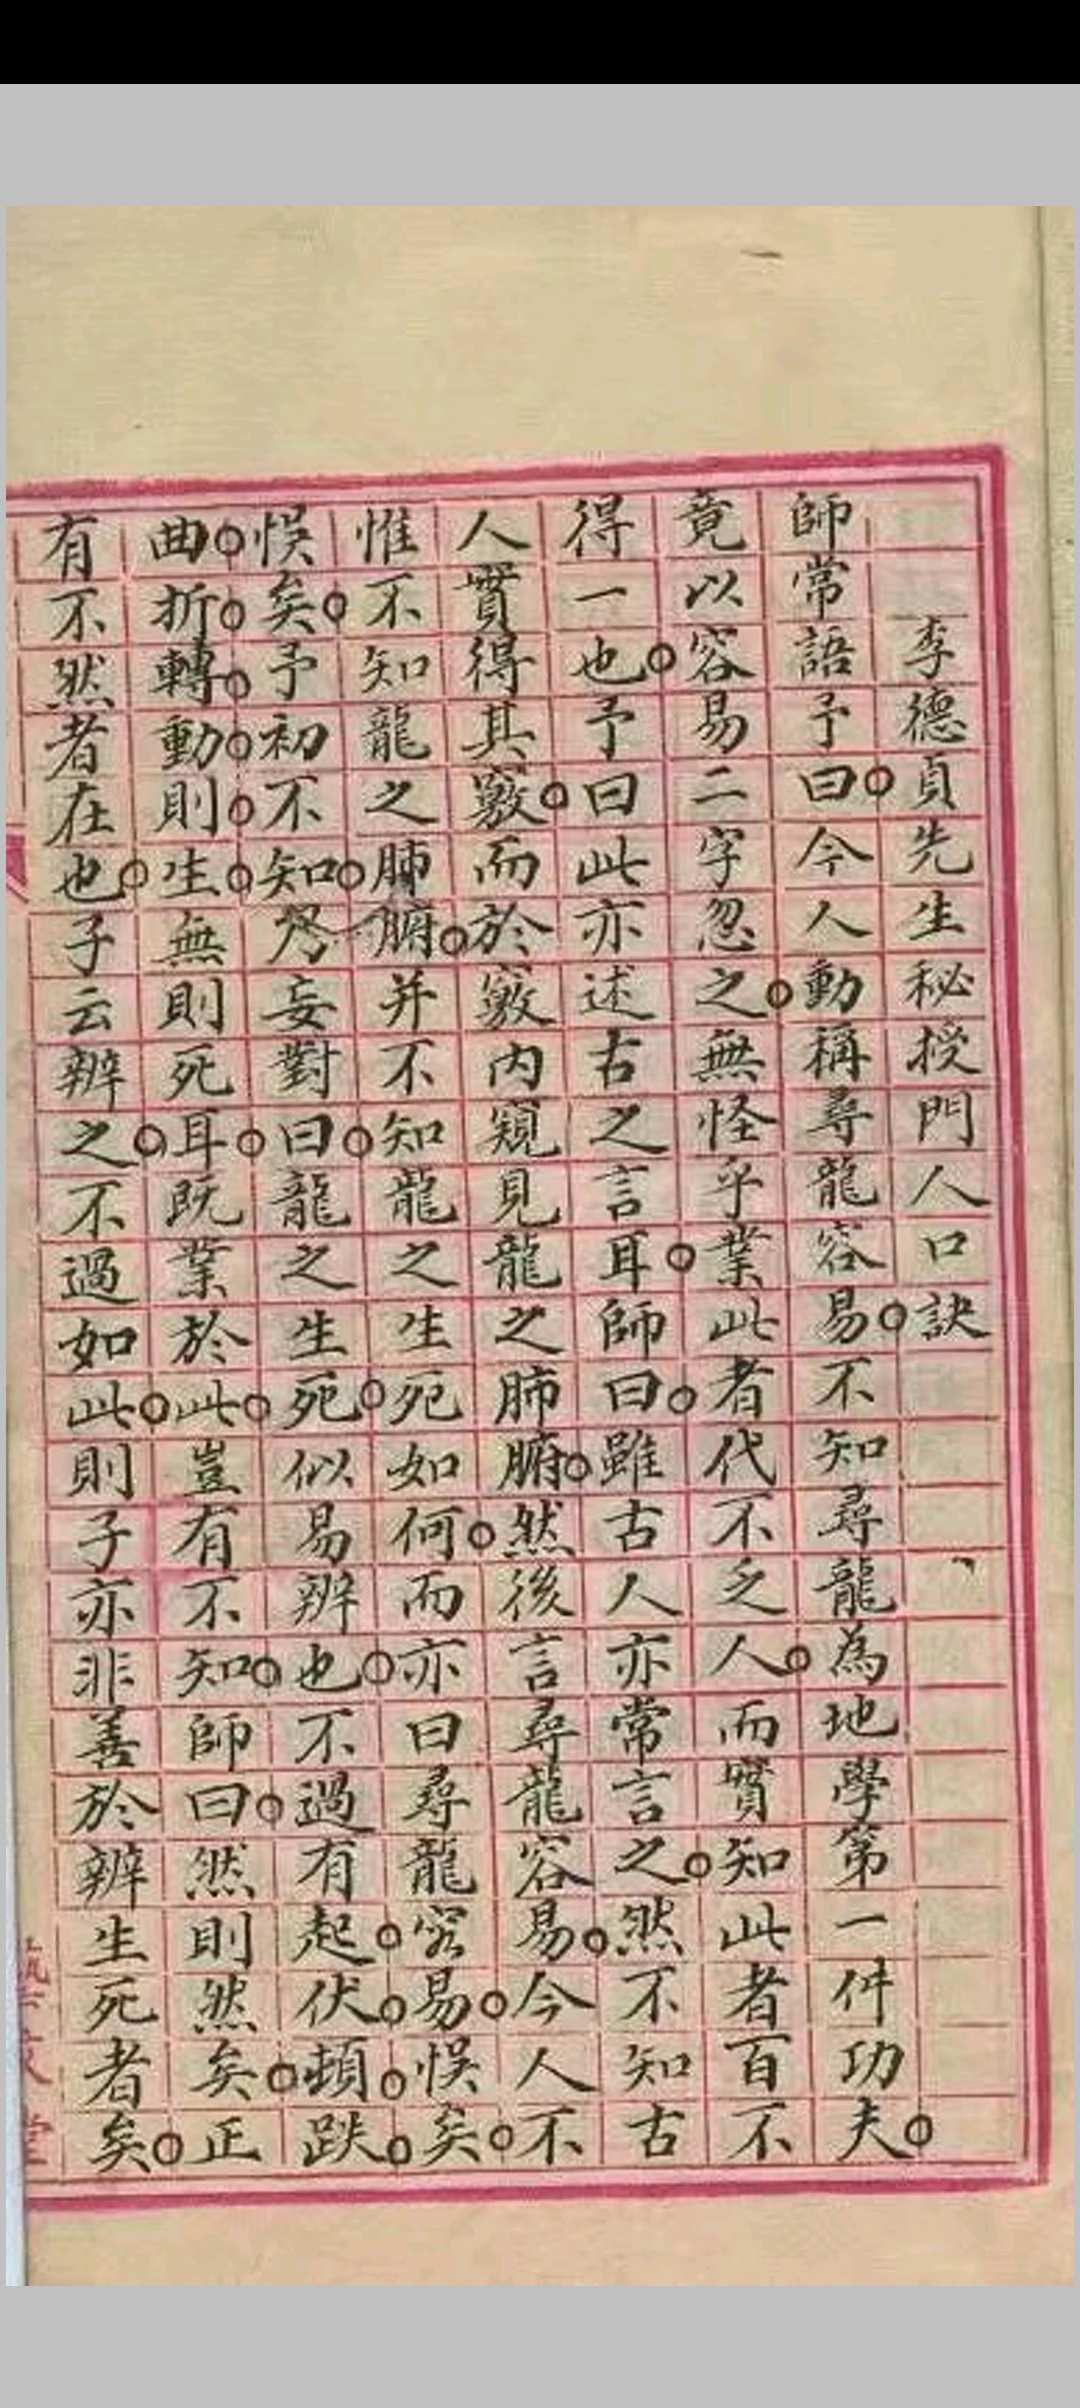 李德貞先生秘授門人口訣
師常語予曰今人動稱尋龍容易不知尋龍為地學第一件功夫
竟以容易二字忽之無怪乎業此者代不乏人而實知此者百不
得一也予曰此亦述古之言耳師曰雖古人亦常言之然不知古
人實得其竅而於竅內窺見龍之肺腑然後言尋龍容易今人不
惟不知龍之肺腑并不知龍之生死如何而亦曰尋龍容易悮矣
悮矣予初不知妄對曰龍之生死似易辨也不過有起伏頓跌
曲折轉動則生無則死耳既業於此豈有不知師曰然則然矣正
有不然者在也子云辨之不過如此則子亦非善於辨生死者矣